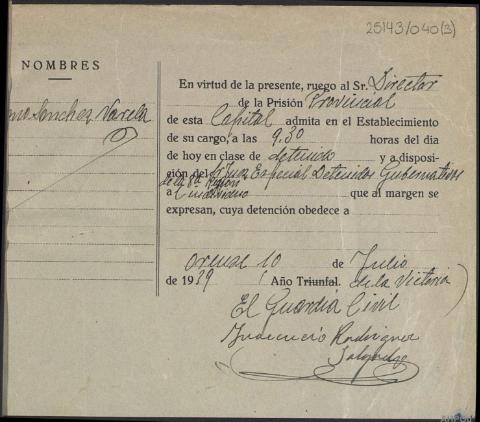 25143/040(3)
NOMBRES
Sanchez Varela
En virtud de la presente, ruego al Sr. Director
de la Prisión Provincial
de esta Capital admita en el Establecimiento
de su cargo, a las 9.30 horas del día
de hoy en clase de detenido y a disposi-
ción del Sr Juez Especial Detenidos Gubernativos
de la 8ª Región
a 1 individuo que al margen se
expresan, cuya detención obedece a
Orense 10 de Julio
de 1939 Año Triunfal. de la Victoria
El Guardia Civil
Rodriguez